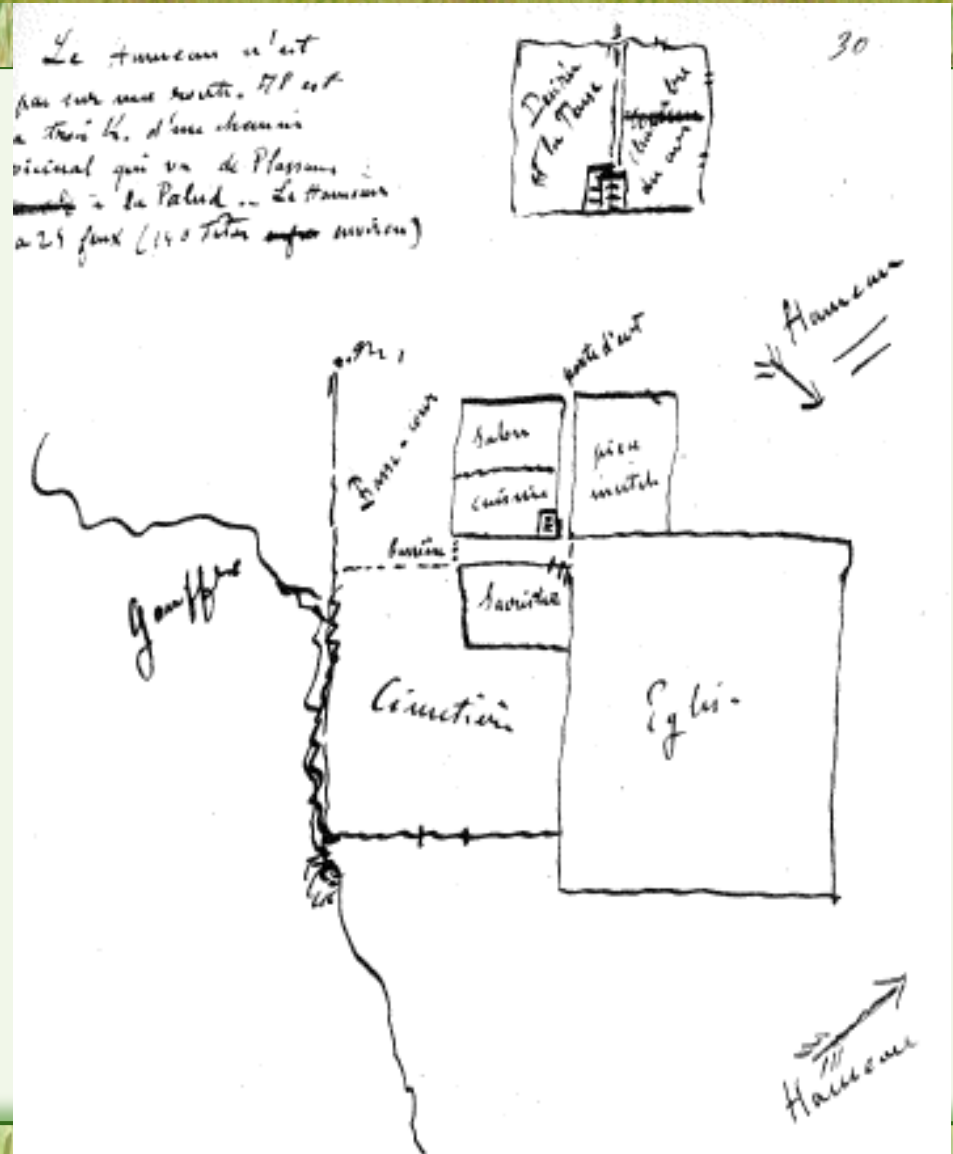 Le Hameau n'est
pas sur une route. Il est
a trois K. d'un chemin
vicinal qui va de Plassans
à la Palud .. Le Hameau
a 25 feux (150 Têtes environ)
30
Désirée
et la Teuse
chambre
du curé
Hameau
porte d'ent
Basse-cour
salon
cuisine
pièce
inutile
barrière
Sacristie
gouffre
Cimetière
Eglise
Hameau